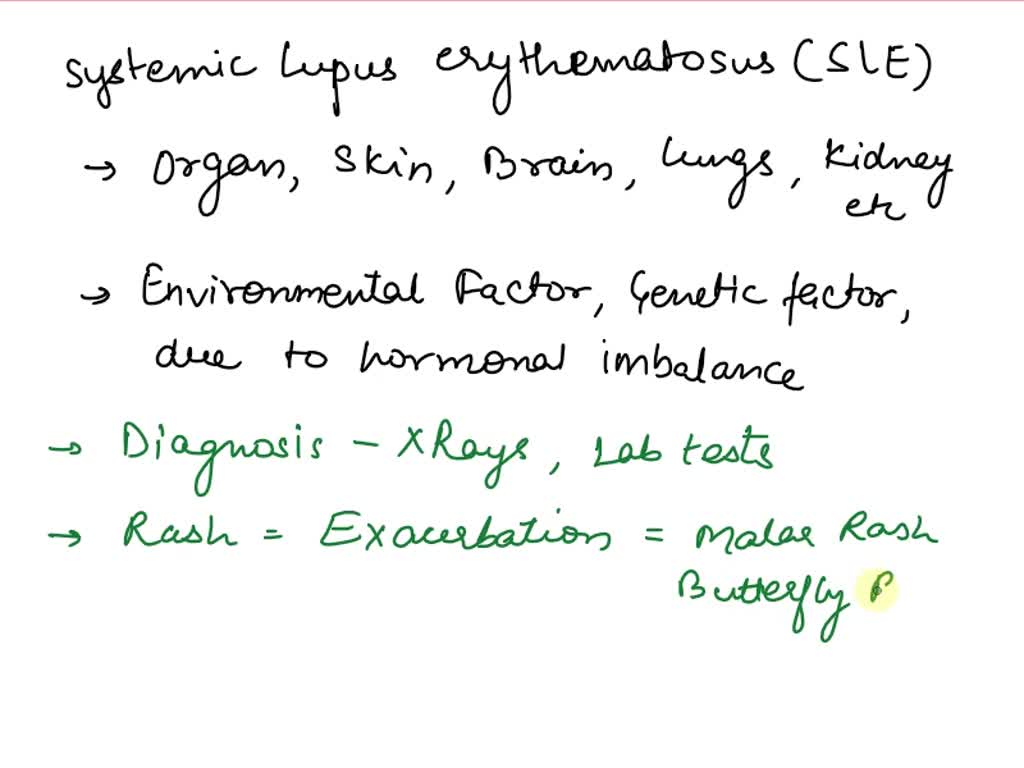 systemic Lupus erythematosus (SLE)
→ Organ, Skin, Brain, Lungs, Kidney
etc
→ Environmental Factor, Genetic factor,
due to hormonal imbalance
→ Diagnosis - X Rays, Lab tests
→ Rash = Exacerbation = Malar Rash
Butterfly